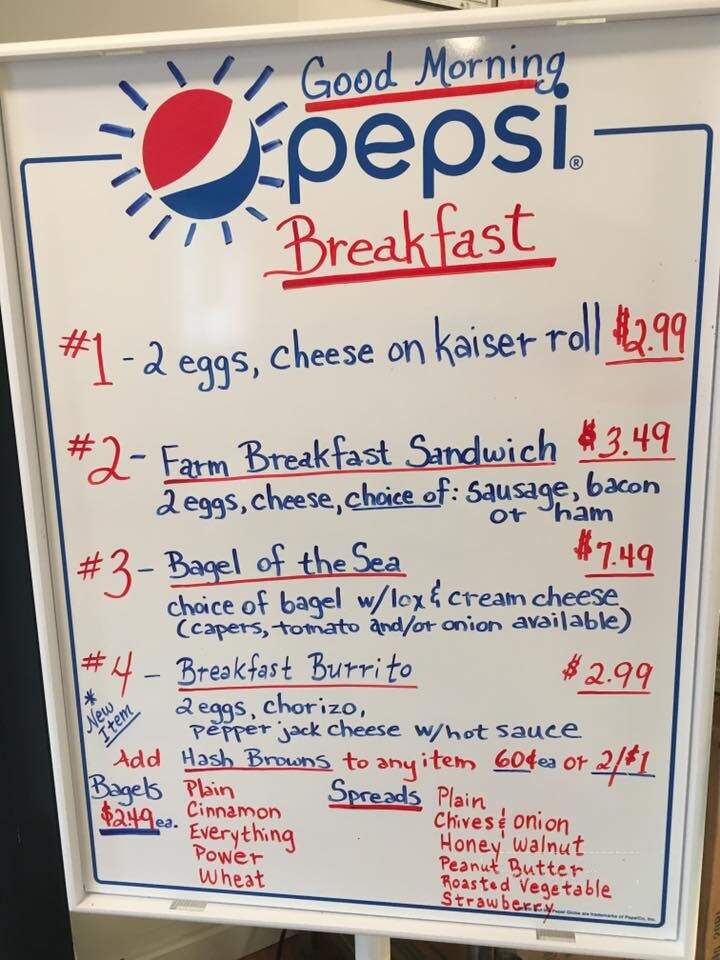 Good Morning
pepsi®
Breakfast
#1 - 2 eggs, cheese on kaiser roll $2.99
#2 - Farm Breakfast Sandwich $3.49
2 eggs, cheese, choice of: sausage, bacon
or ham
#3 - Bagel of the Sea $7.49
choice of bagel w/lox & cream cheese
(capers, tomato and/or onion available)
#4 - Breakfast Burrito $2.99
* New Item
2 eggs, chorizo,
pepper jack cheese w/hot sauce
Add Hash Browns to any item 60¢ea or 2/$1
Bagels $2.49 ea.
Plain
Cinnamon
Everything
Power
Wheat
Spreads
Plain
Chives & onion
Honey Walnut
Peanut Butter
Roasted Vegetable
Strawberry
Pepsi Globe are trademarks of PepsiCo, Inc.